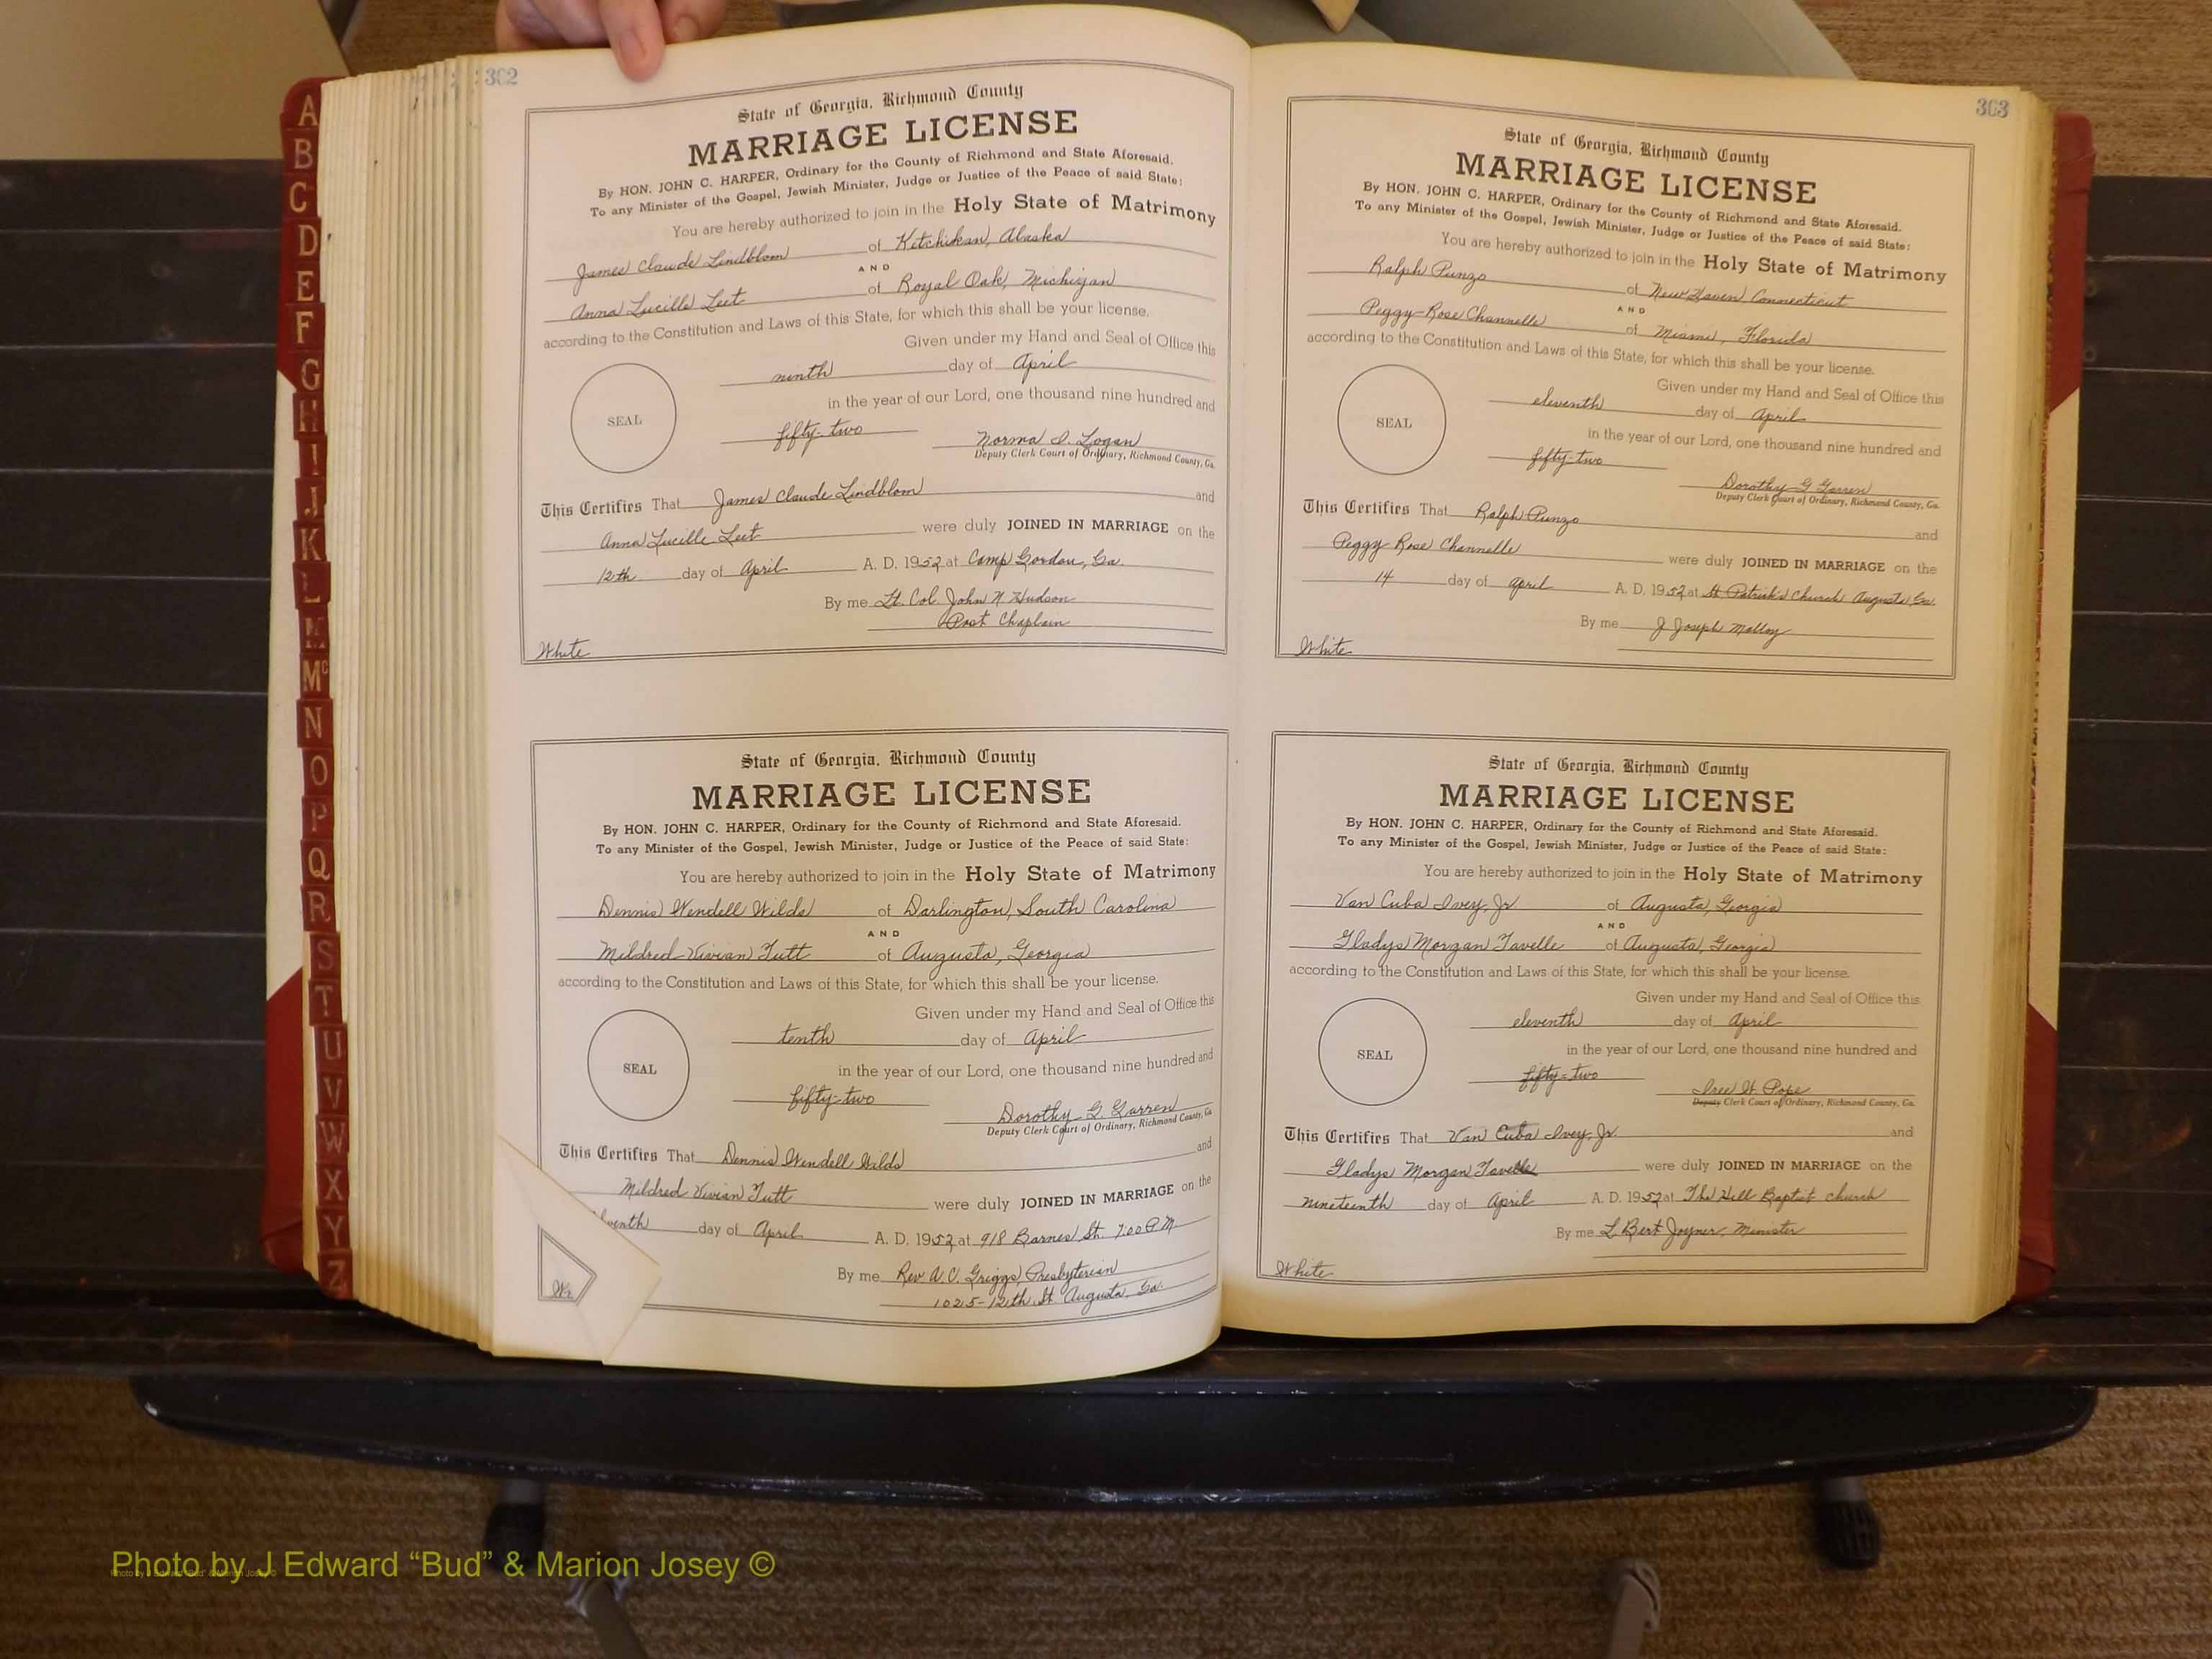 A
B
C
D
E
F
G
H
I
J
K
L
M
Mc
N
O
P
Q
R
S
T
U
V
W
X
Y
Z
302
State of Georgia, Richmond County
MARRIAGE LICENSE
By HON. JOHN C. HARPER, Ordinary for the County of Richmond and State Aforesaid.
To any Minister of the Gospel, Jewish Minister, Judge or Justice of the Peace of said State:
You are hereby authorized to join in the Holy State of Matrimony
James Claude Lindblom of Ketchikan, Alaska
AND
Anna Lucille Leet of Royal Oak, Michigan
according to the Constitution and Laws of this State, for which this shall be your license.
Given under my Hand and Seal of Office this
ninth day of April
in the year of our Lord, one thousand nine hundred and
SEAL
fifty-two Norma I. Logan
Deputy Clerk Court of Ordinary, Richmond County, Ga.
This Certifies That James Claude Lindblom and
Anna Lucille Leet were duly JOINED IN MARRIAGE on the
12th day of April A. D. 1952 at Camp Gordon, Ga.
By me Lt. Col. John N Hudson
Post Chaplain
White
State of Georgia, Richmond County
MARRIAGE LICENSE
By HON. JOHN C. HARPER, Ordinary for the County of Richmond and State Aforesaid.
To any Minister of the Gospel, Jewish Minister, Judge or Justice of the Peace of said State:
You are hereby authorized to join in the Holy State of Matrimony
Dennis Wendell Wilds of Darlington, South Carolina
AND
Mildred Vivian Tutt of Augusta, Georgia
according to the Constitution and Laws of this State, for which this shall be your license.
Given under my Hand and Seal of Office this
tenth day of April
in the year of our Lord, one thousand nine hundred and
SEAL
fifty-two Dorothy G. Garren
Deputy Clerk Court of Ordinary, Richmond County, Ga.
This Certifies That Dennis Wendell Wilds and
Mildred Vivian Tutt were duly JOINED IN MARRIAGE on the
day of April A. D. 1952 at 918 Barnes St. 7:00 P.M.
By me Rev A. C. Griggs, Presbyterian
1025-12th St Augusta, Ga.
303
State of Georgia, Richmond County
MARRIAGE LICENSE
By HON. JOHN C. HARPER, Ordinary for the County of Richmond and State Aforesaid.
To any Minister of the Gospel, Jewish Minister, Judge or Justice of the Peace of said State:
You are hereby authorized to join in the Holy State of Matrimony
Ralph Punzo of New Haven, Connecticut
AND
Peggy-Rose Channelle of Miami, Florida
according to the Constitution and Laws of this State, for which this shall be your license.
Given under my Hand and Seal of Office this
eleventh day of April
in the year of our Lord, one thousand nine hundred and
SEAL
fifty-two Dorothy G Garren
Deputy Clerk Court of Ordinary, Richmond County, Ga.
This Certifies That Ralph Punzo and
Peggy Rose Channelle were duly JOINED IN MARRIAGE on the
14 day of April A. D. 1952 at St Patrick's Church Augusta Ga.
By me J Joseph Malloy
White
State of Georgia, Richmond County
MARRIAGE LICENSE
By HON. JOHN C. HARPER, Ordinary for the County of Richmond and State Aforesaid.
To any Minister of the Gospel, Jewish Minister, Judge or Justice of the Peace of said State:
You are hereby authorized to join in the Holy State of Matrimony
Van Cuba Ivey, Jr of Augusta, Georgia
AND
Gladys Morgan Tavelle of Augusta, Georgia
according to the Constitution and Laws of this State, for which this shall be your license.
Given under my Hand and Seal of Office this
eleventh day of April
in the year of our Lord, one thousand nine hundred and
SEAL
fifty-two W. Pope
Deputy Clerk Court of Ordinary, Richmond County, Ga.
This Certifies That Van Cuba Ivey, Jr. and
Gladys Morgan Tavelle were duly JOINED IN MARRIAGE on the
nineteenth day of April A. D. 1952 at The Hill Baptist church
By me L Bert Joyner, Minister
White
Photo by J Edward “Bud” & Marion Josey ©